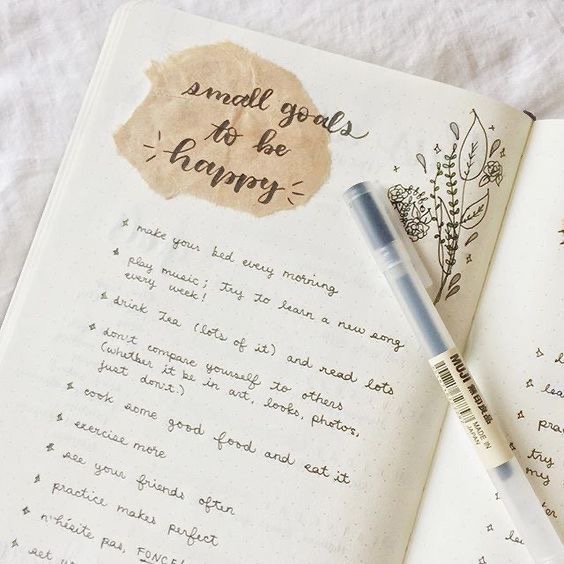 small goals
to be
happy
make your bed every morning
play music; try to learn a new song
every week!
drink tea (lots of it) and read lots
don't compare yourself to others
(whether it be in art, looks, photos,
just don't.)
cook some good food and eat it
exercise more
see your friends often
practice makes perfect
n'hésite pas, FONCE!
get
MUJI 無印良品
MADE IN
JAPAN
l
lea
prac
try
my
l
le